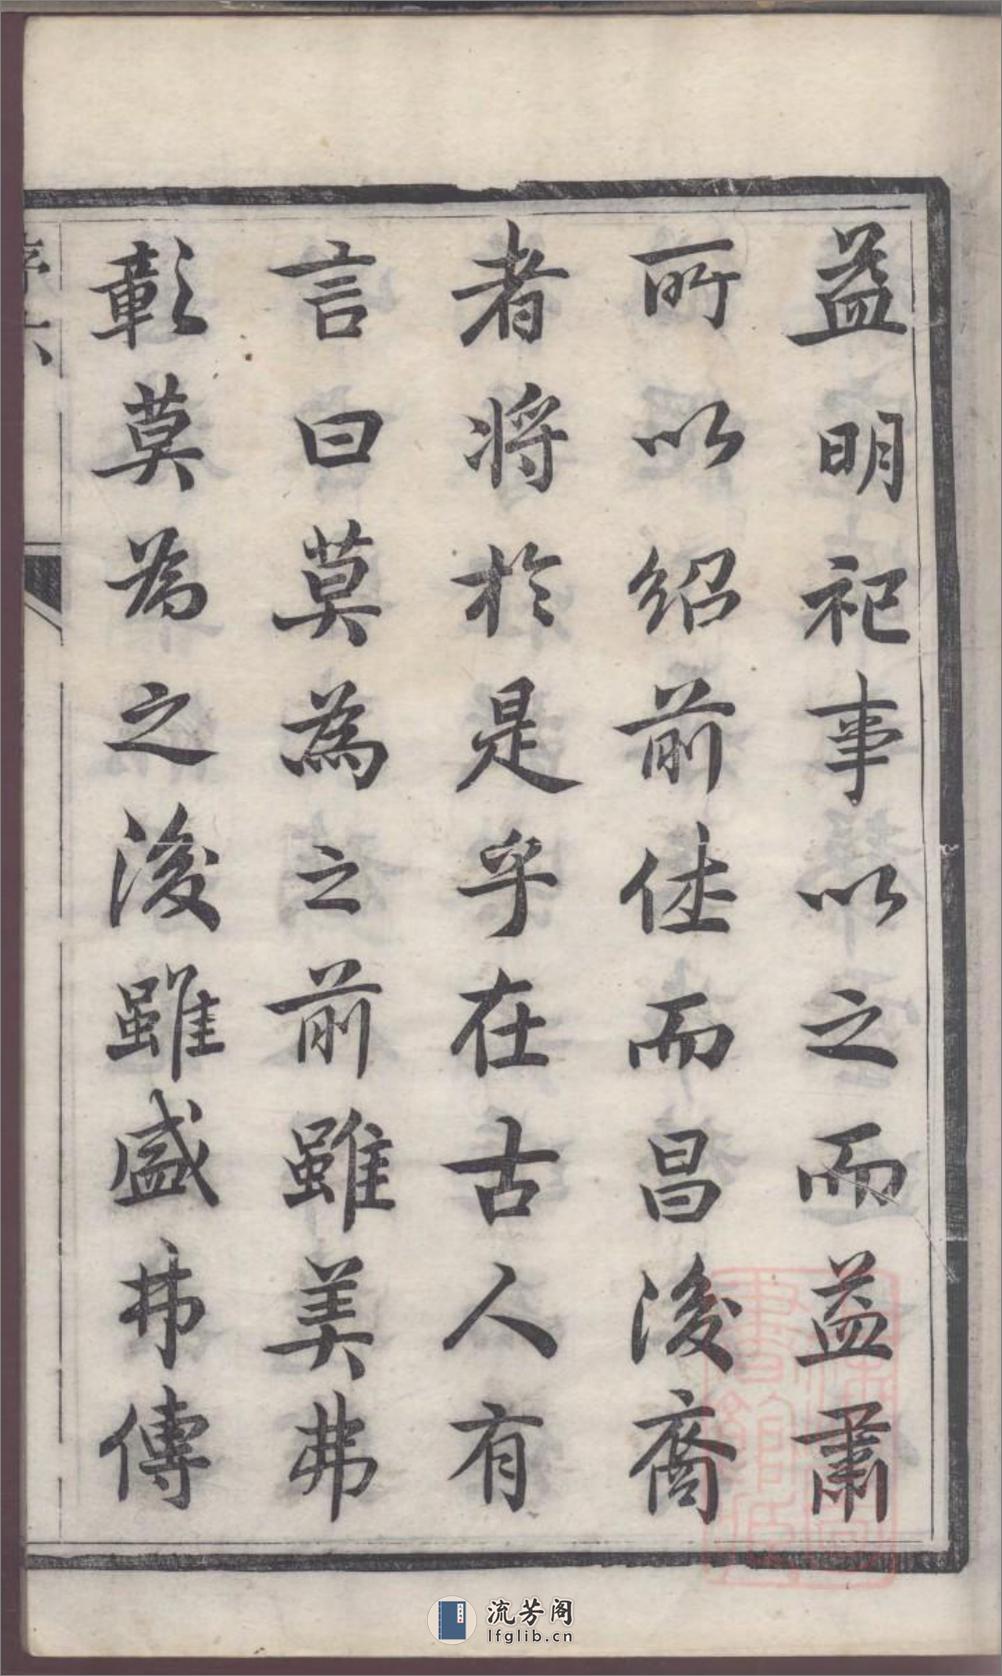 益明祀事以之而益肅
所以紹前徃而昌後裔
者將於是乎在古人有
言曰莫為之前雖美弗
彰莫為之後雖盛弗傳
序 六
流芳阁
lfglib.cn